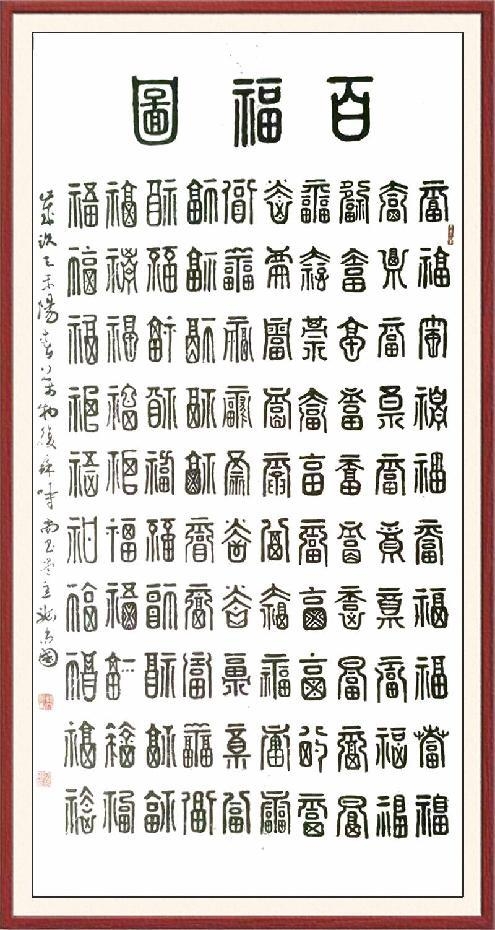 百福圖
福福福福福福福福福福
福福福福福福福福福福
福福福福福福福福福福
福福福福福福福福福福
福福福福福福福福福福
福福福福福福福福福福
福福福福福福福福福福
福福福福福福福福福福
福福福福福福福福福福
福福福福福福福福福福
歲次乙未陽春萬物復蘇時尚玉堂主